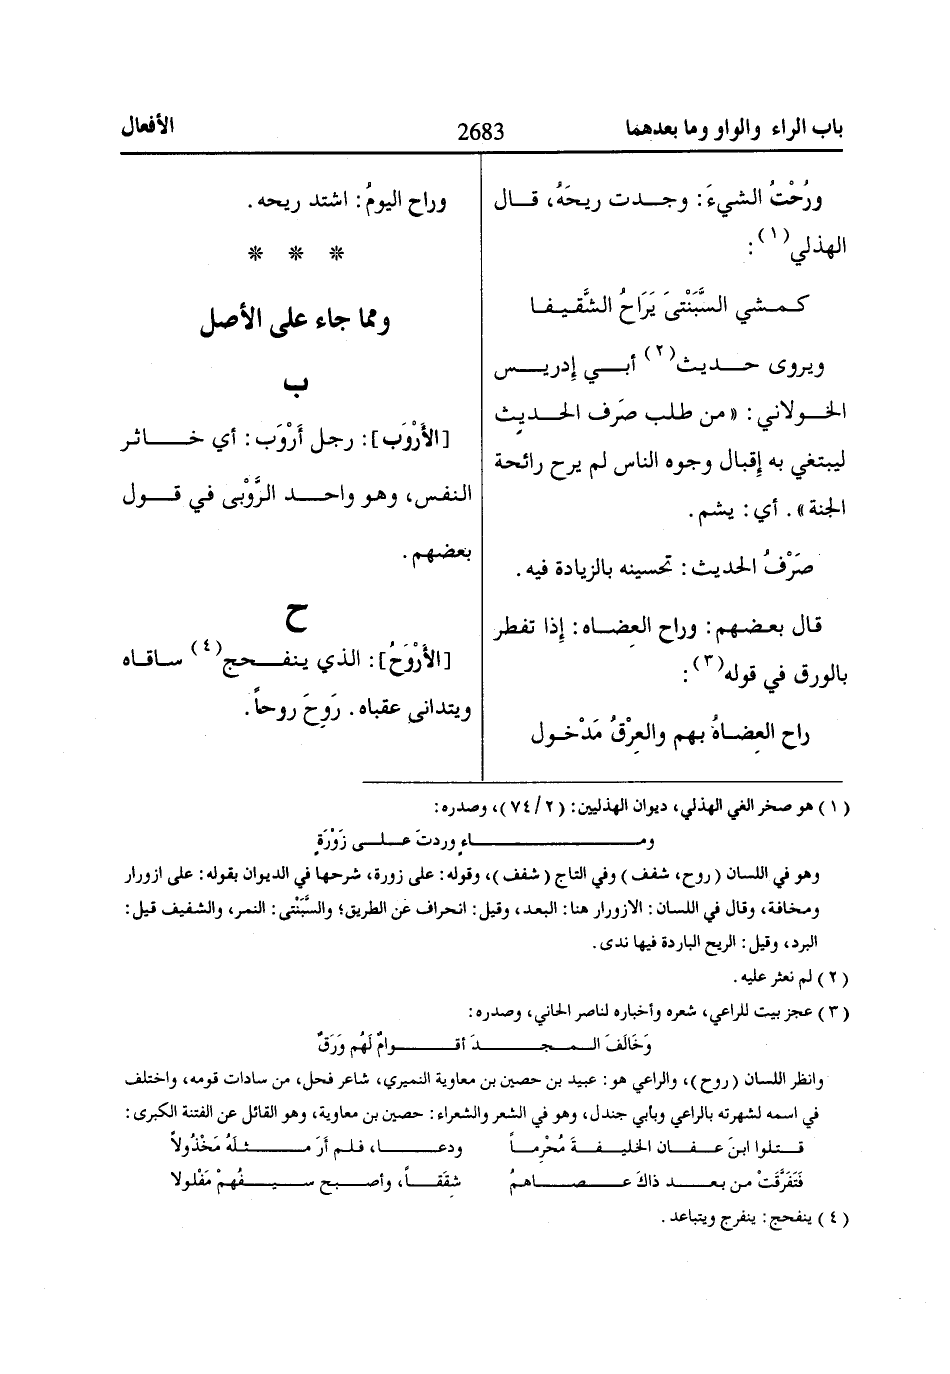 باب الراء والواو وما بعدهما
2683
الأفعال
ورُحْتُ الشيءَ: وجدت ريحَهُ، قال
الهذلي(١):
كمشي السَّبَنْتىَ يَرَاحُ الشَّفِيفا
ويروى حديث(٢) أبي إدريس
الخولاني: «من طلب صَرف الحديث
ليبتغي به إقبال وجوه الناس لم يرح رائحة
الجنة». أي: يشم.
صَرْفُ الحديث: تحسينه بالزيادة فيه.
قال بعضهم: وراح العضاه: إذا تفطر
بالورق في قوله(٣):
راح العِضاهُ بهم والعِرْقُ مَدْخول
وراح اليومُ: اشتد ريحه.
* * *
ومما جاء على الأصل
ب
[الأَرْوَب]: رجل أَرْوَب: أي خاثر
النفس، وهو واحد الرَّوْبى في قول
بعضهم.
ح
[الأَرْوَحُ]: الذي ينفحج(٤) ساقاه
ويتدانى عقباه. رَوِحَ روحاً.
(١) هو صخر الغي الهذلي، ديوان الهذليين: (٢/ ٧٤)، وصدره:
وماءٍ وردتَ على زَوْرَةٍ
وهو في اللسان (روح، شفف) وفي التاج (شفف)، وقوله: على زورة، شرحها في الديوان بقوله: على ازورار
ومخافة، وقال في اللسان: الازورار هنا: البعد، وقيل: انحراف عن الطريق؛ والسَّبَنْتى: النمر، والشفيف قيل:
البرد، وقيل: الريح الباردة فيها ندى.
(٢) لم نعثر عليه.
(٣) عجز بيت للراعي، شعره وأخباره لناصر الحاني، وصدره:
وَخَالَفَ المجدَ أقوامٌ لَهُم وَرَقٌ
وانظر اللسان (روح)، والراعي هو: عبيد بن حصين بن معاوية النميري، شاعر فحل، من سادات قومه، واختلف
في اسمه لشهرته بالراعي وبابي جندل، وهو في الشعر والشعراء: حصين بن معاوية، وهو القائل عن الفتنة الكبرى:
قتلوا ابنَ عفان الخليفةَ مُحْرِماً ودعا، فلم أرَ مثلَهُ مَخْذُولاً
فَتَفَرَّقَتْ من بعد ذاكَ عصاهمُ شِقَقاً، وأصبح سيفُهمْ مَفْلولا
(٤) ينفحج: ينفرج ويتباعد.